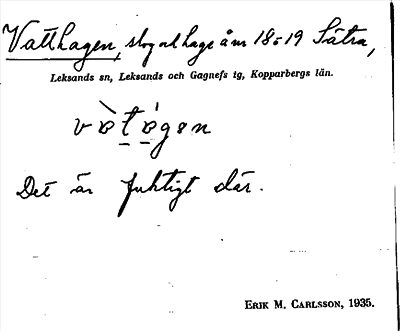 Vatthagen, skog och hage å nr 18 o 19 Sätra,
Leksands sn, Leksands och Gagnefs tg, Kopparbergs län.
vàtágen
Det är fuktigt där.
ERIK M. CARLSSON, 1935.